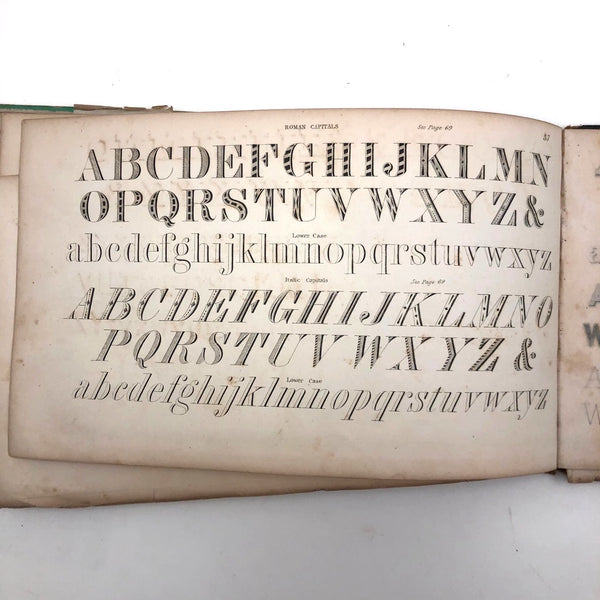 ROMAN CAPITALS See Page 69 37
ABCDEFGHIJKLMN
OPQRSTUVWXYZ&
Lower Case
abcdefghijklmnopqrstuvwxyz
Italic Capitals See Page 69
ABCDEFGHIJKLMNO
PQRSTUVWXYZ &
Lower Case
abcdefghijklmnopqrstuvwxyz